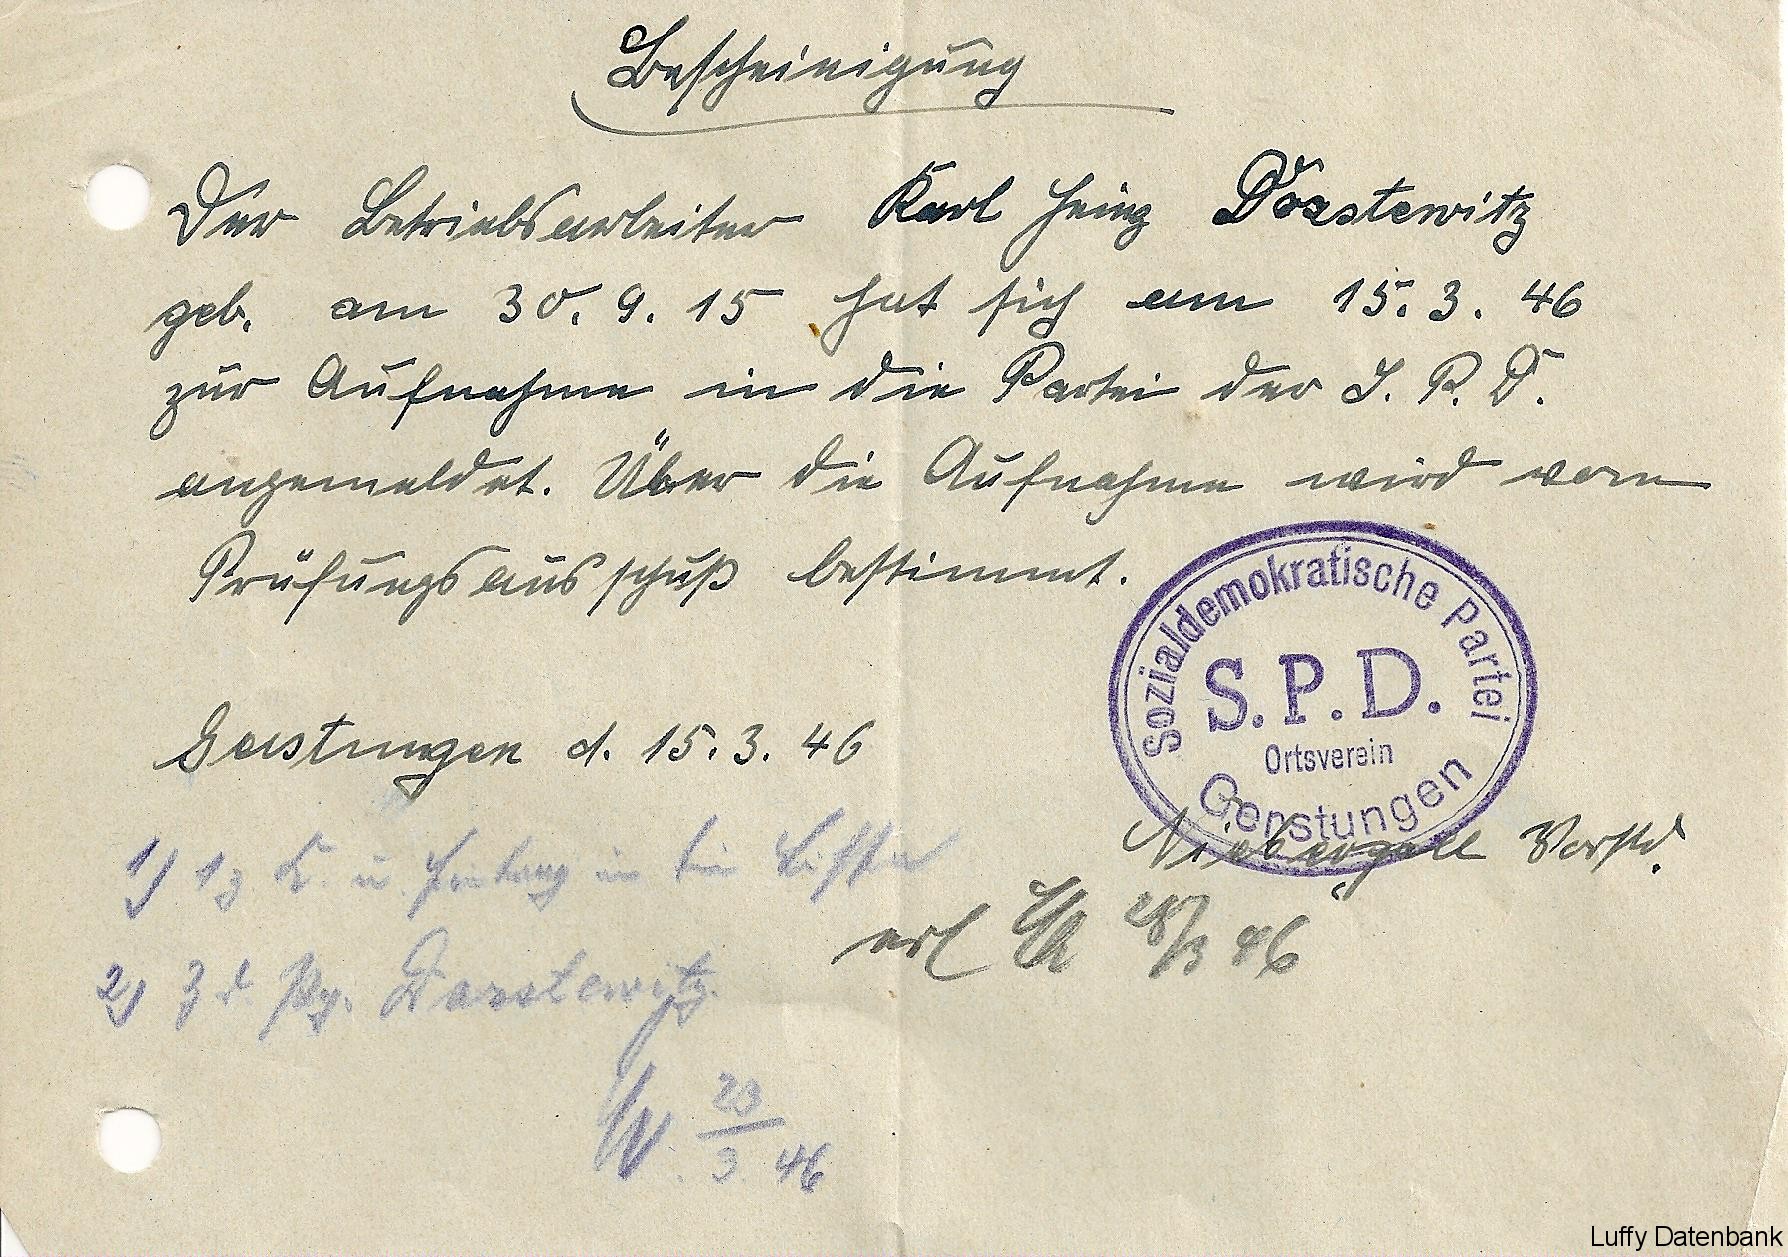 Bescheinigung
Der Betriebsarbeiter Karl Heinz Dorstewitz
geb. am 30. 9. 15 hat sich am 15. 3. 46
zur Aufnahme in die Partei der S. P. D.
angemeldet. Über die Aufnahme wird vom
Prüfungsausschuß bestimmt.
Sozialdemokratische Partei
S.P.D.
Ortsverein
Gerstungen
Gerstungen d. 15. 3. 46
Niebergall Vorstd.
1) in die Listen
erl 28/3 46
2) z d Dorstewitz.
23
3. 46
Luffy Datenbank